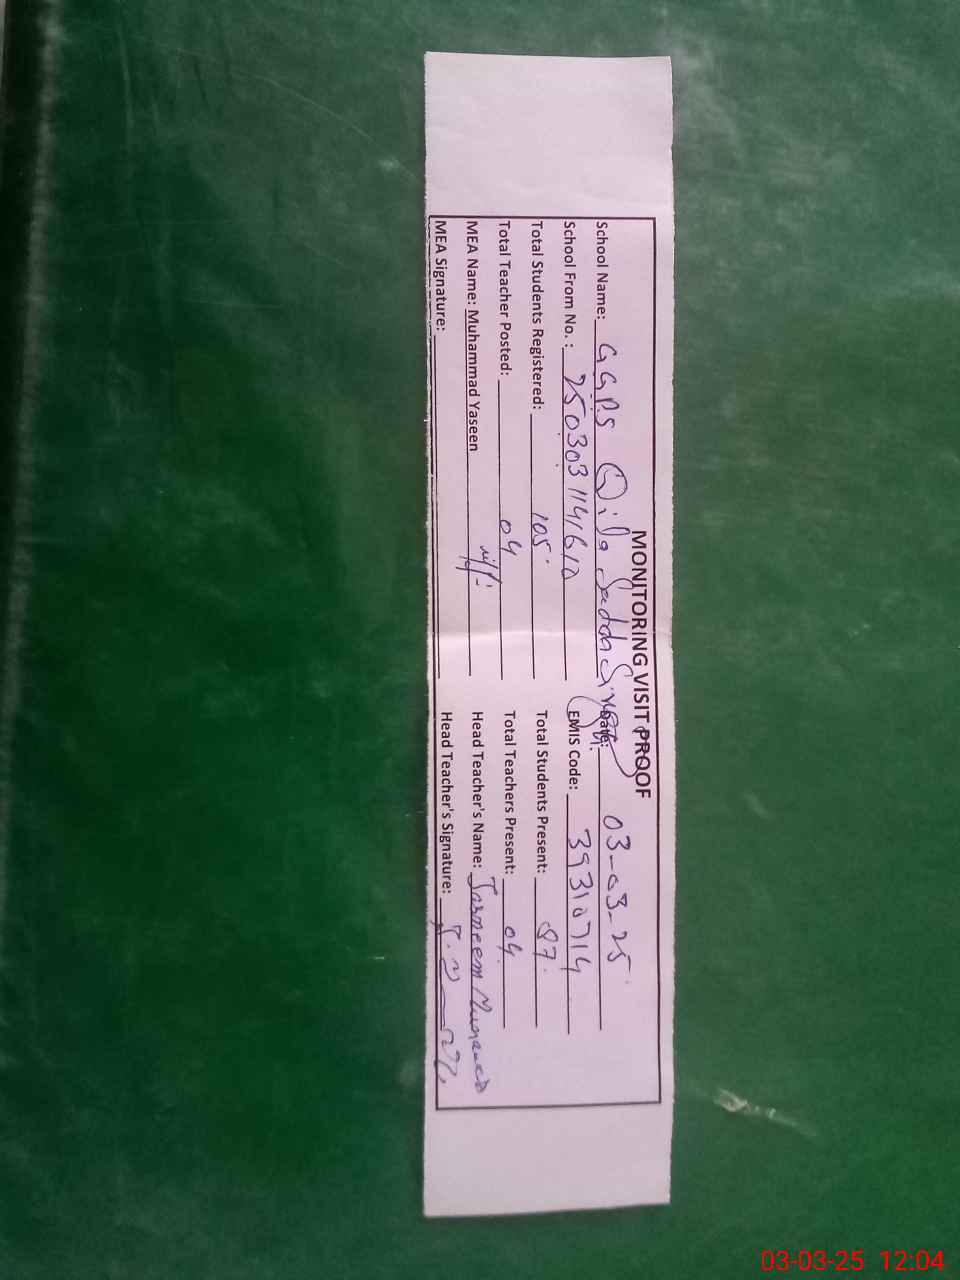 MONITORING VISIT PROOF
School Name: GGPS Qila Saddh Singh Date: 03-03-25
School From No.: 2503031141610 EMIS Code: 39310714
Total Students Registered: 105 Total Students Present: 97
Total Teacher Posted: 04 Total Teachers Present: 04
MEA Name: Muhammad Yaseen Head Teacher's Name: Tasneem
MEA Signature: Head Teacher's Signature:
03-03-25 12:04